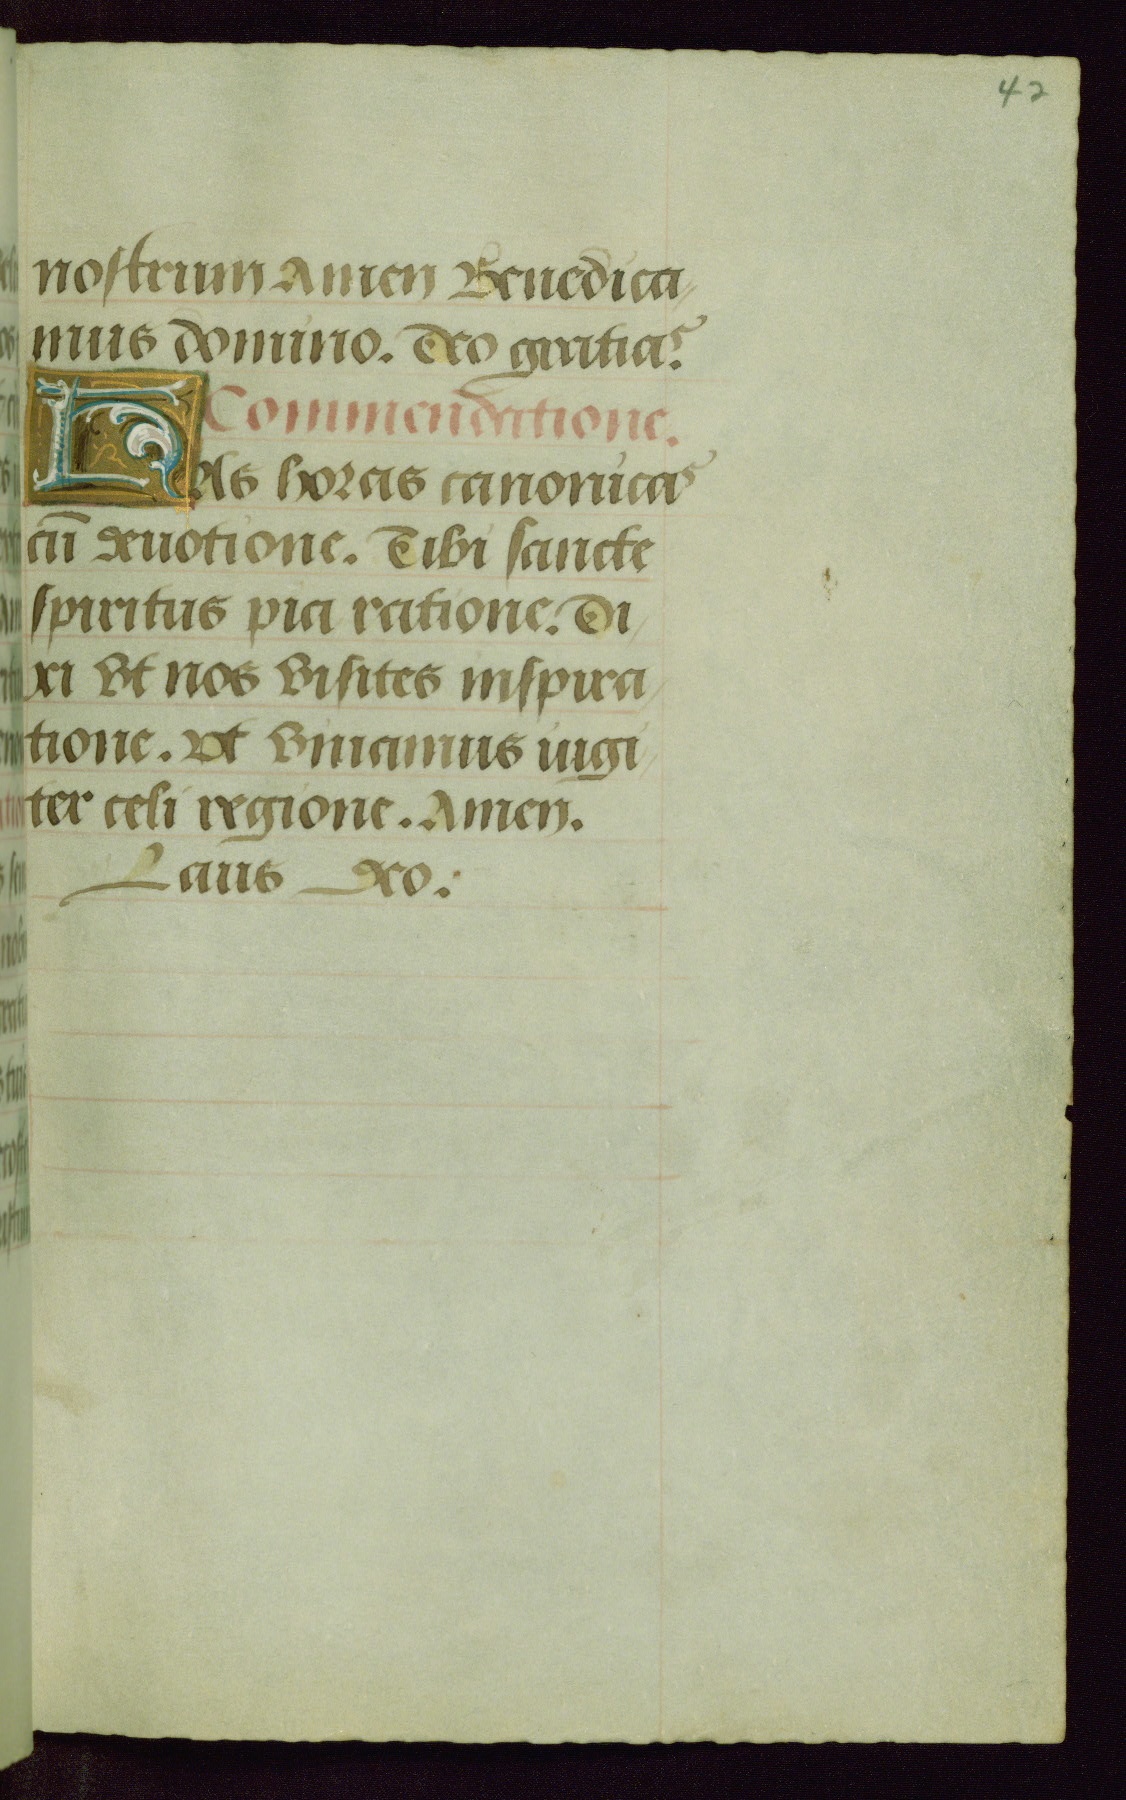 42
nostrum Amen Benedica
mus domino. Deo gratias.
Commendatione.
HAs horas canonicas
cū deuotione. Tibi sancte
spiritus pia ratione. Di
xi vt nos visites inspira
tione. vt viuamus iugi
ter celi regione. Amen.
Laus deo.